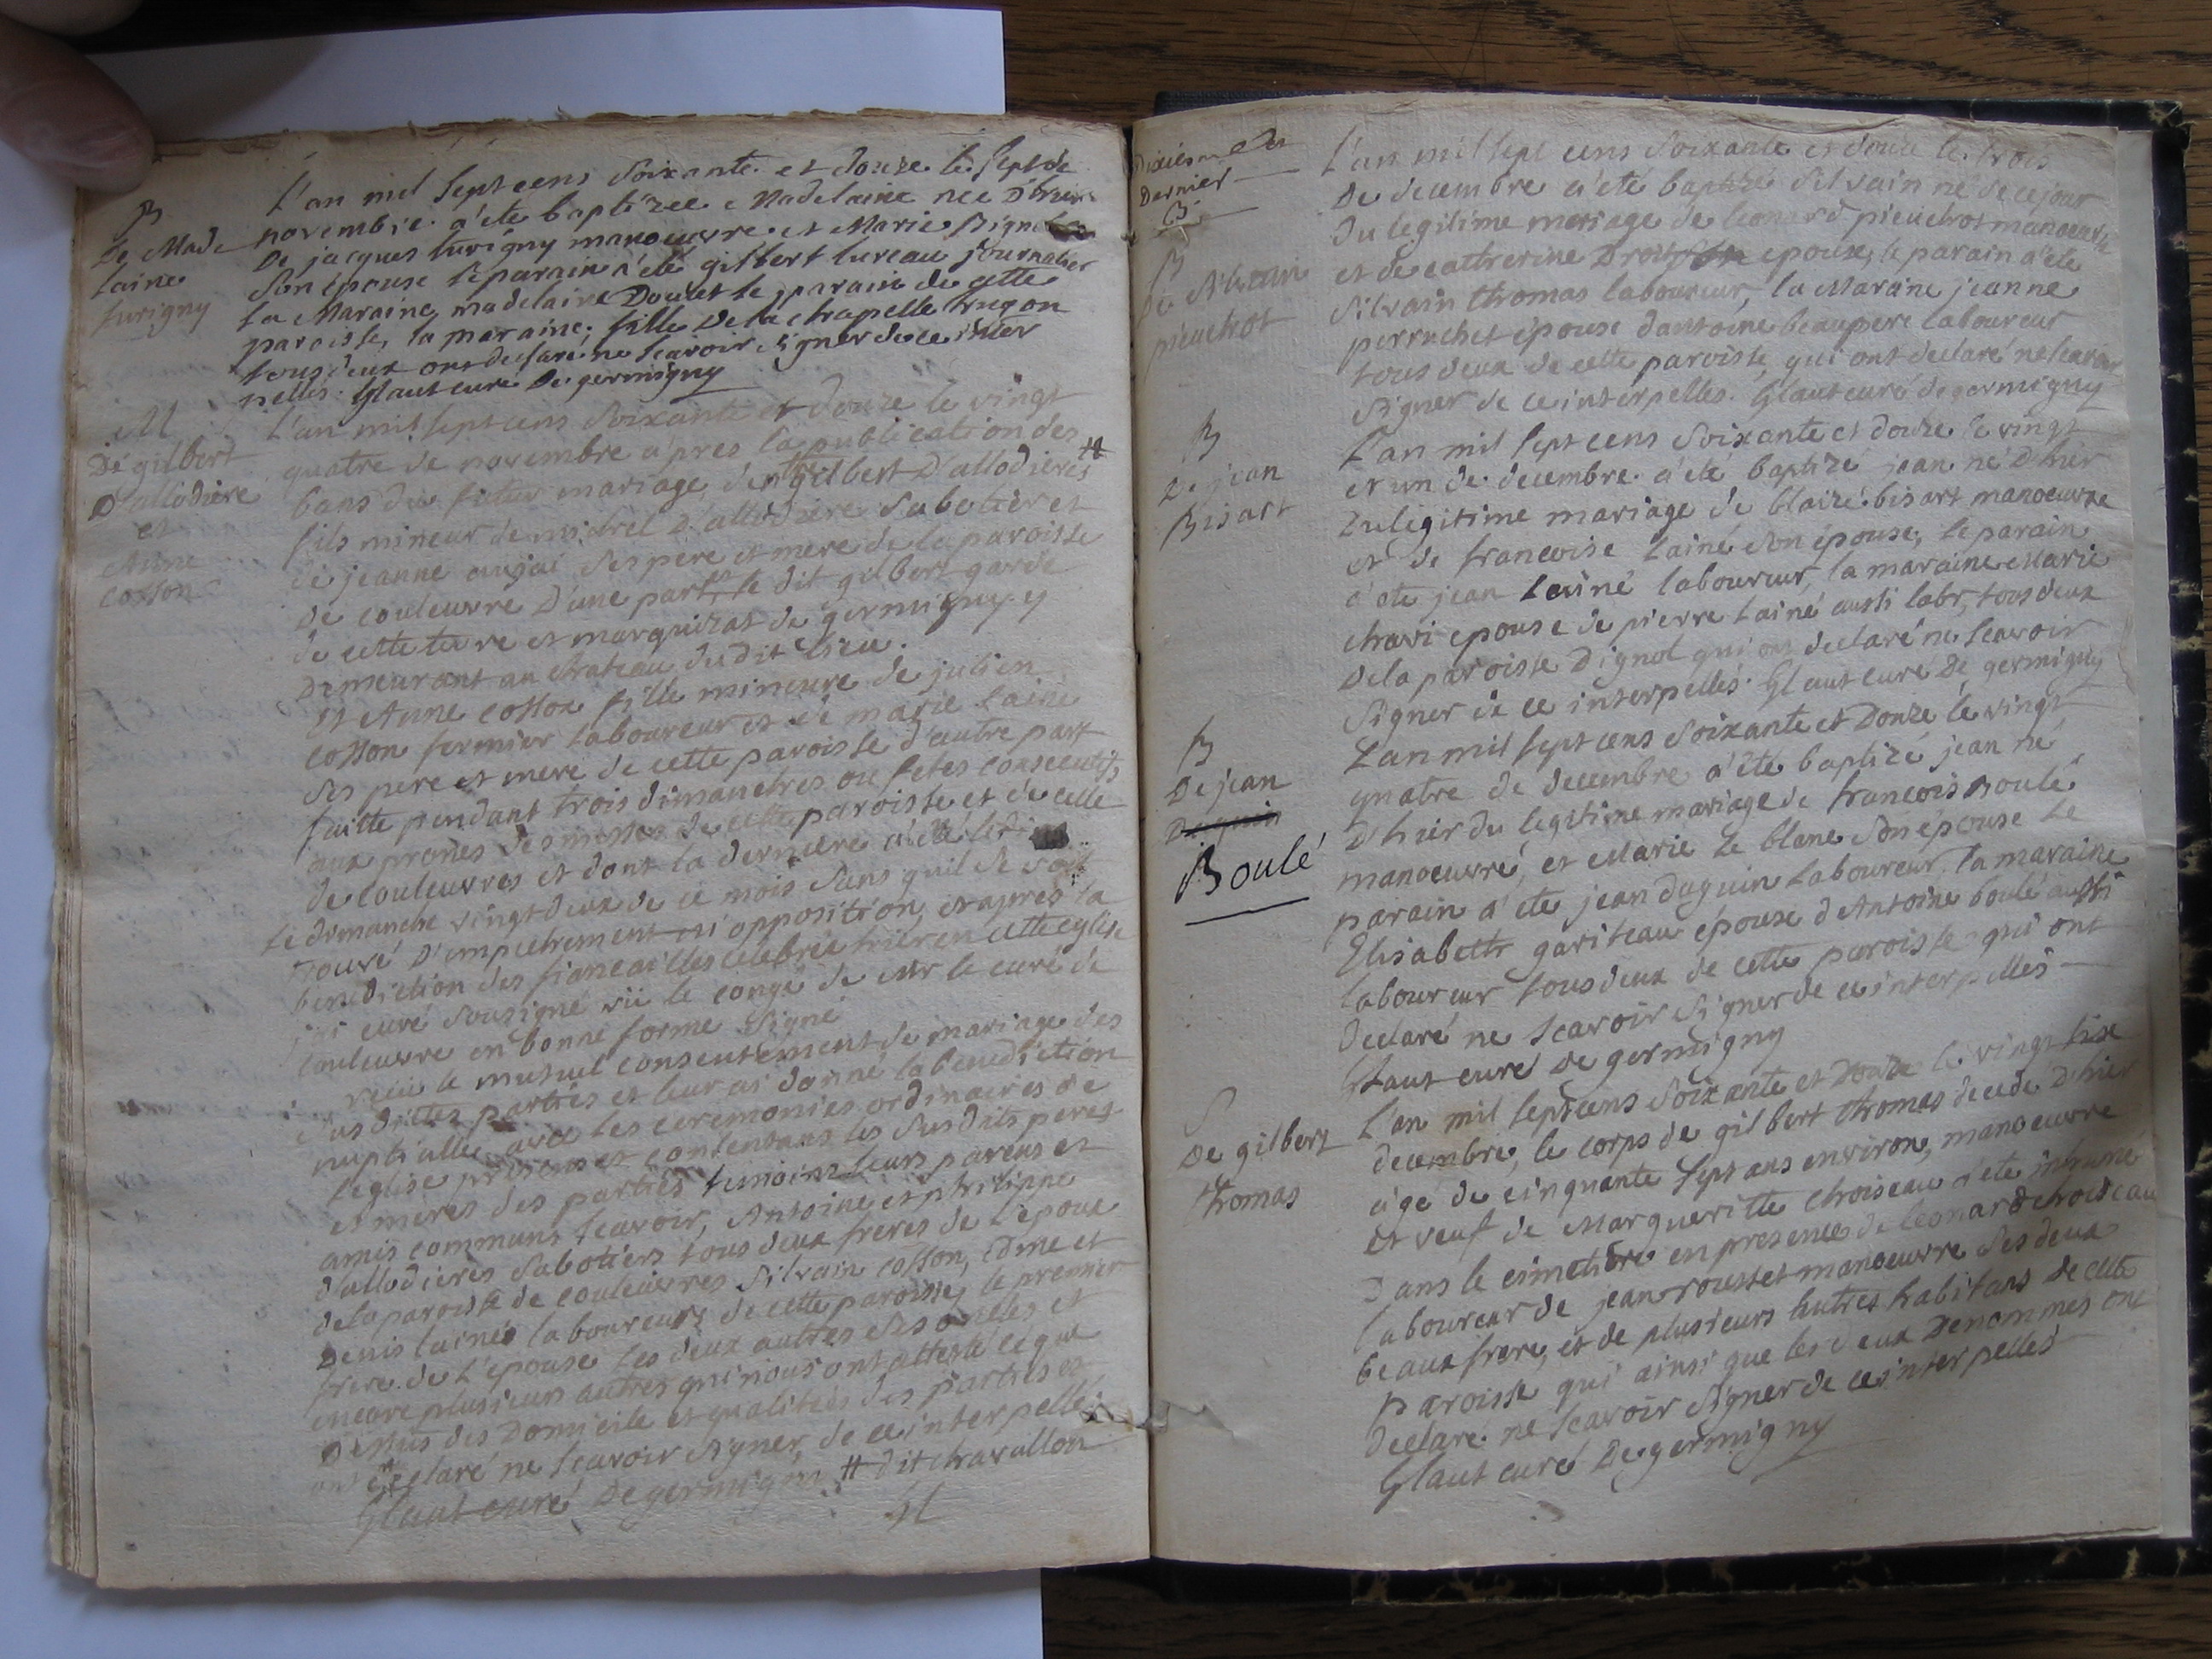 B
De Made
laine
turigny
L'an mil sept cens soixante et douze le sept de
novembre a'ete baptizee Madelaine nee D'hier
De jacques turigny manoeuvre et Marie
son épouse le parain a'eté gilbert lureau journalier
la Maraine madelaine Doulet le parain de cette
paroisse, la maraine, fille De la chapelle hugon
tous deux ont declaré ne scavoir signer de ce inter
pellés. Glaut curé De germigny
M
De gilbert
D'allodiere
et
Anne
cosson
L'an mil sept cens soixante et douze le vingt
quatre de novembre a'pres la publication des
bans du futur mariage, d'en gilbert D'allodieres #
fils mineur de michel D'allodiere sabotier et
de jeanne aujai ses pere et mere de la paroisse
de couleuvre D'une part, le dit gilbert garde
de cette terre et marquizat de germigny y
Demeurant au chateau dudit lieu.
Et Anne cosson fille mineure de julien
cosson fermier laboureur et de marie lainé
ses pere et mere de cette paroisse d'autre part
faitte pendant trois dimanches ou fetes consecutifs
aux prones des messes de cette paroisse et de celle
de couleuvres et dont la derniere a'eté
le dimanche vingt deux de ce mois sans quil se soit
trouvé D'empechement ni opposition, et apres la
benediction des fiancailles celebrée hier en cette eglise
j'ai curé sousigné vü le congé de Mr le curé de
couleuvre en bonne forme signé
recu le mutuel consentement de mariage des
susdittes parties et leur ai donné la benediction
nuptialle avec les ceremonies ordinaires de
l'eglise presens et contentans les susdits peres
et meres des parties temoins leurs parens et
amis communs scavoir, Antoine et philippe
d'allodieres sabotiers tous deux freres de l'epoux
de la paroisse de couleuvres silvain cosson, edme et
Denis lainés laboureurs de cette paroisse, le premier
frere de l'epouse les deux autres ses oncles et
encore plusieurs autres qui nous ont attesté ce que
Dessus des Domicile et qualités des parties et
ont declaré ne scavoir signer, de ce interpellés
Glaut curé De germigny # dit chavallon
Gl
Dixieme et
Dernier
B
De silvain
pieuchot
L'an mil sept cens soixante et douze le trois
De decembre a'eté baptizé silvain né de ce jour
Du legitime mariage de leonard pieuchot manoeuvre
et de catherine Droit son epouse, le parain a'eté
silvain thomas laboureur, la Maraine jeanne
perruchet épouse d'antoine beaupere laboureur
tous deux de cette paroisse, qui ont declaré ne scavoir
signer de ce interpelles. Glaut curé de germigny
B
De jean
Bisart
L'an mil sept cens soixante et douze le vingt
et un de decembre a'eté baptizé jean né D'hier
Du legitime mariage de blaize bisart manoeuvre
et de francoise lainé son épouse, le parain
a'ete jean lainé laboureur, la maraine Marie
chavi epouse de pierre lainé aussi labr, tous deux
De la paroisse D'ignol qui ont declaré ne scavoir
signer de ce interpellés. Glaut curé De germigny
B
De jean
Daguin
Boulé
L'an mil sept cens soixante et Douze le vingt
quatre de decembre a'eté baptizé jean né
D'hier du legitime mariage de francois Boulé
manoeuvre, et Marie le blanc son épouse le
parain a'ete jean daguin laboureur, la maraine
Elisabeth gariteau épouse d'Antoine boulé aussi
laboureur tous deux de cette paroisse qui ont
declaré ne scavoir signer de ce interpellés
Glaut curé De germigny
S
De gilbert
thomas
L'an mil sept cens soixante et Douze le vingt sixe
decembre, le corps de gilbert thomas decedé D'hier
agé de cinquante sept ans environ, manoeuvre
et veuf de Margueritte choiseau a'eté inhumé
Dans le cimetiere en presence de leonard choiseau
laboureur de jean rousset manoeuvre ses deux
beaux frere, et de plusieurs autres habitans de cette
paroisse qui ainsi que les deux Denommes ont
declaré ne scavoir signer de ce interpellés
Glaut curé De germigny